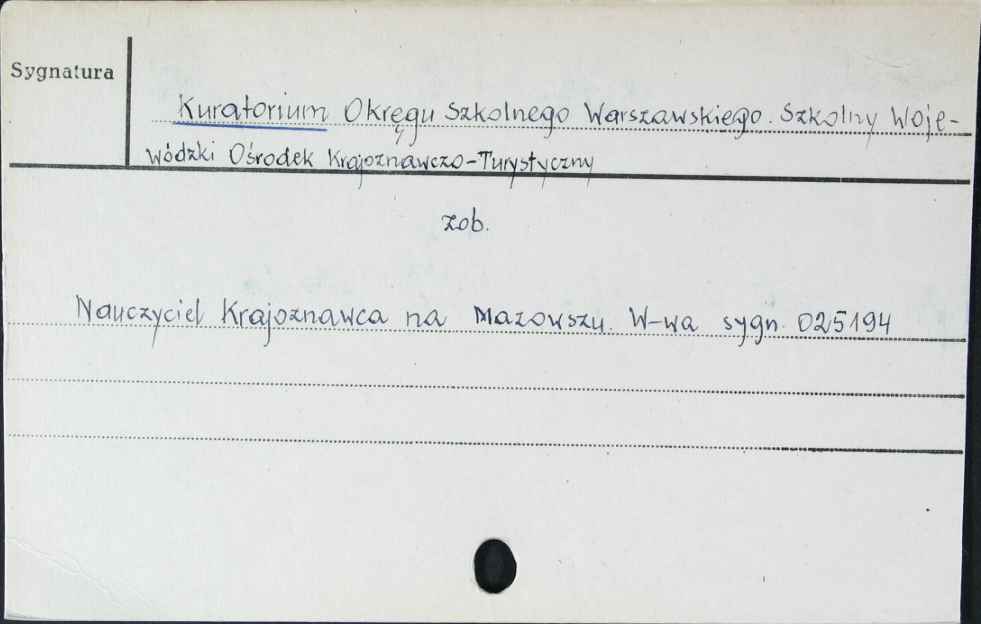 Sygnatura
Kuratorium Okręgu Szkolnego Warszawskiego. Szkolny Woje-
wódzki Ośrodek Krajoznawczo-Turystyczny
zob.
Nauczyciel Krajoznawca na Mazowszu. W-wa sygn. 025194